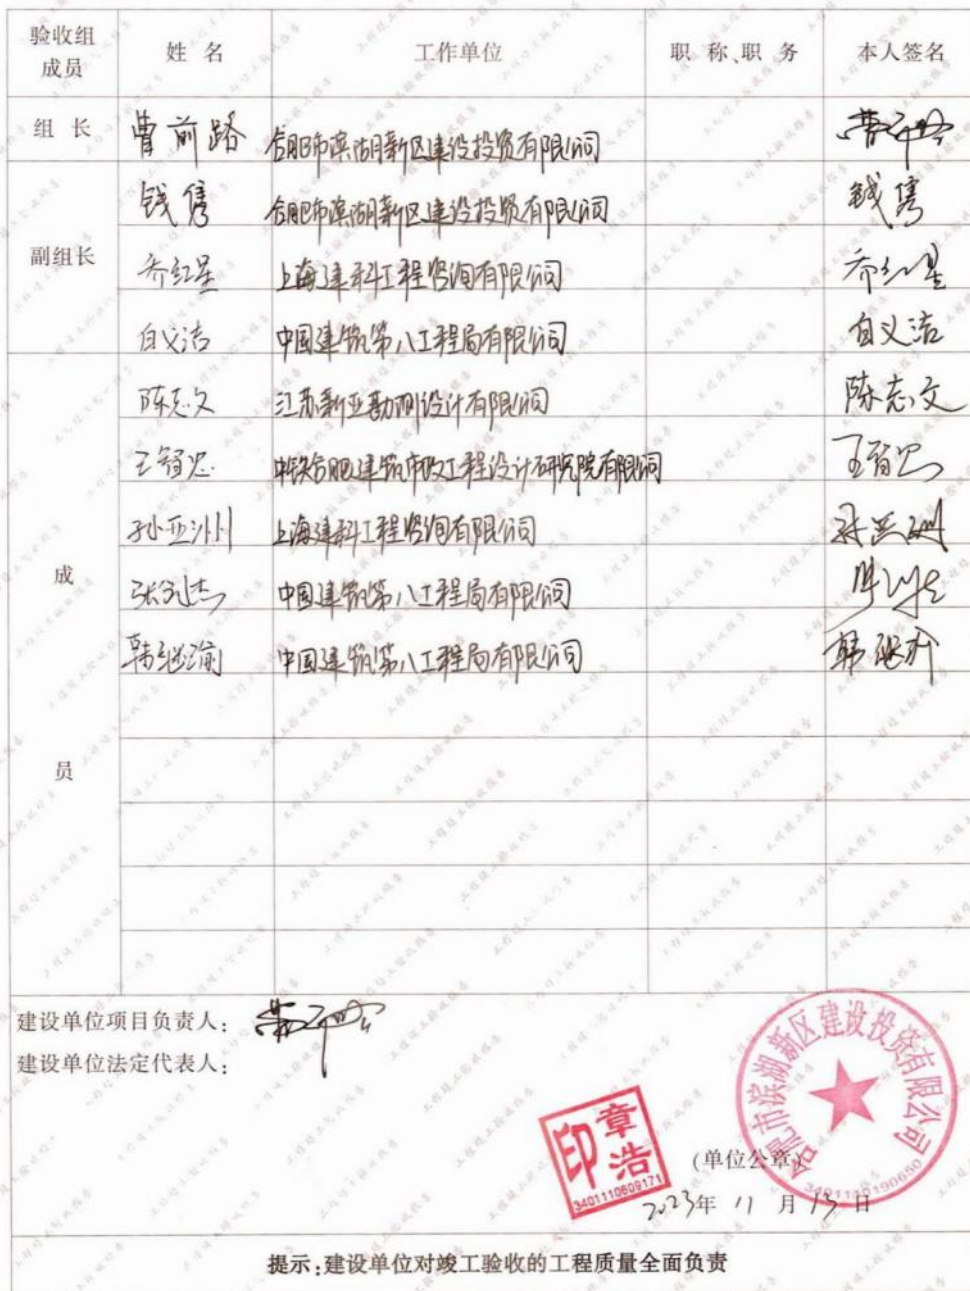 验收组成员 姓 名 工作单位 职 称、职 务 本人签名
组 长 曹前路 合肥市滨湖新区建设投资有限公司
钱隽 合肥市滨湖新区建设投资有限公司 钱隽
副组长 乔红星 上海建科工程咨询有限公司 乔红星
白义洁 中国建筑第八工程局有限公司 白义洁
陈志文 江苏新亚勘测设计有限公司 陈志文
王智忠 中铁合肥建筑市政工程设计研究院有限公司 王智忠
孙亚洲 上海建科工程咨询有限公司 孙亚洲
成 中国建筑第八工程局有限公司
韩继瑜 中国建筑第八工程局有限公司
员
建设单位项目负责人:
建设单位法定代表人:
合肥市滨湖新区建设投资有限公司
章浩印
3401110609171
(单位公章)
2023年 11 月 13 日
提示:建设单位对竣工验收的工程质量全面负责